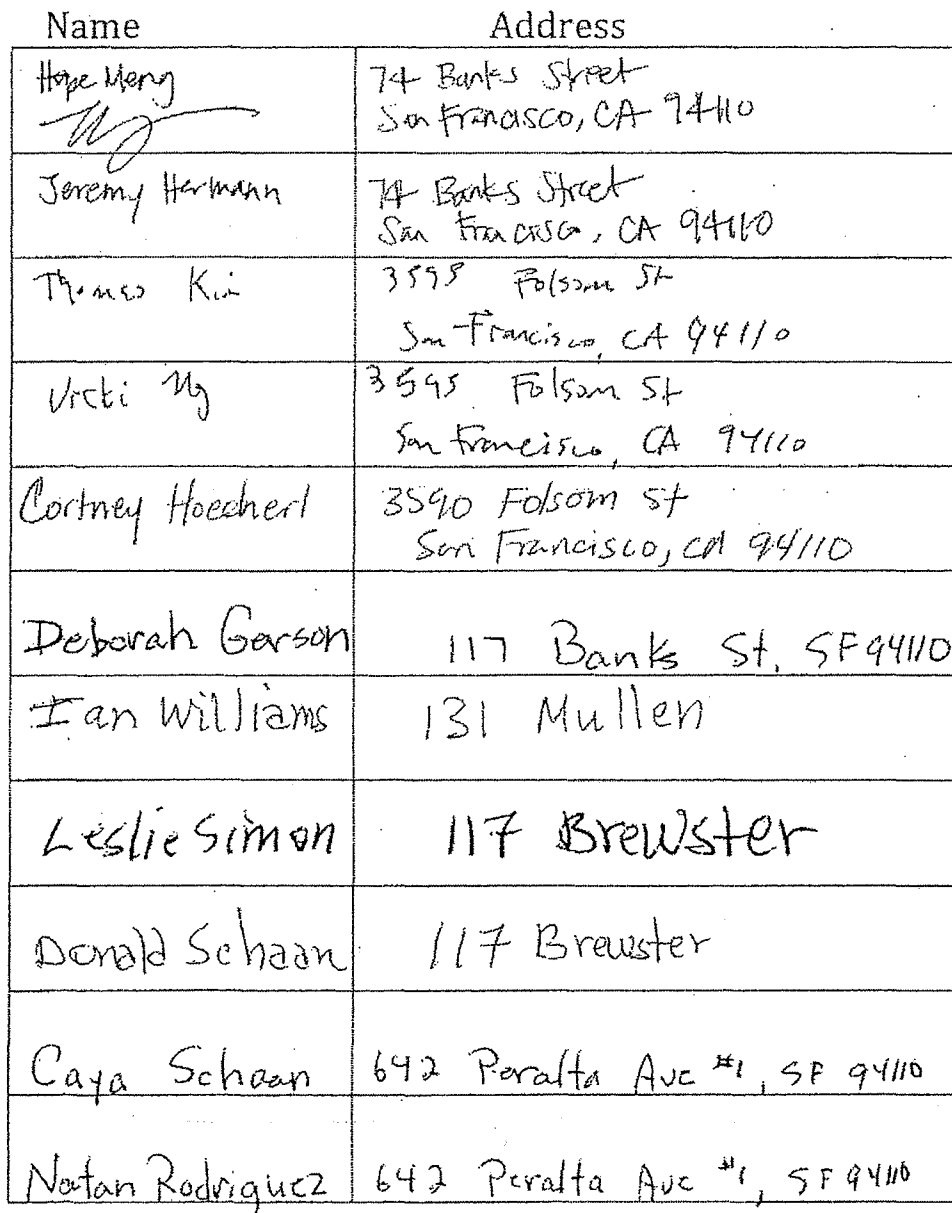 Name Address
Hope Meng 74 Banks Street
San Francisco, CA 94110
Jeremy Hermann 74 Banks Street
San Francisco, CA 94110
Thomas Kim 3595 Folsom St
San Francisco, CA 94110
Vicki Ng 3595 Folsom St
San Francisco, CA 94110
Cortney Hoecherl 3590 Folsom St
San Francisco, CA 94110
Deborah Gerson 117 Banks St. SF 94110
Ian Williams 131 Mullen
Leslie Simon 117 Brewster
Donald Schaan 117 Brewster
Caya Schaan 642 Peralta Ave #1, SF 94110
Natan Rodriguez 642 Peralta Ave #1, SF 94110